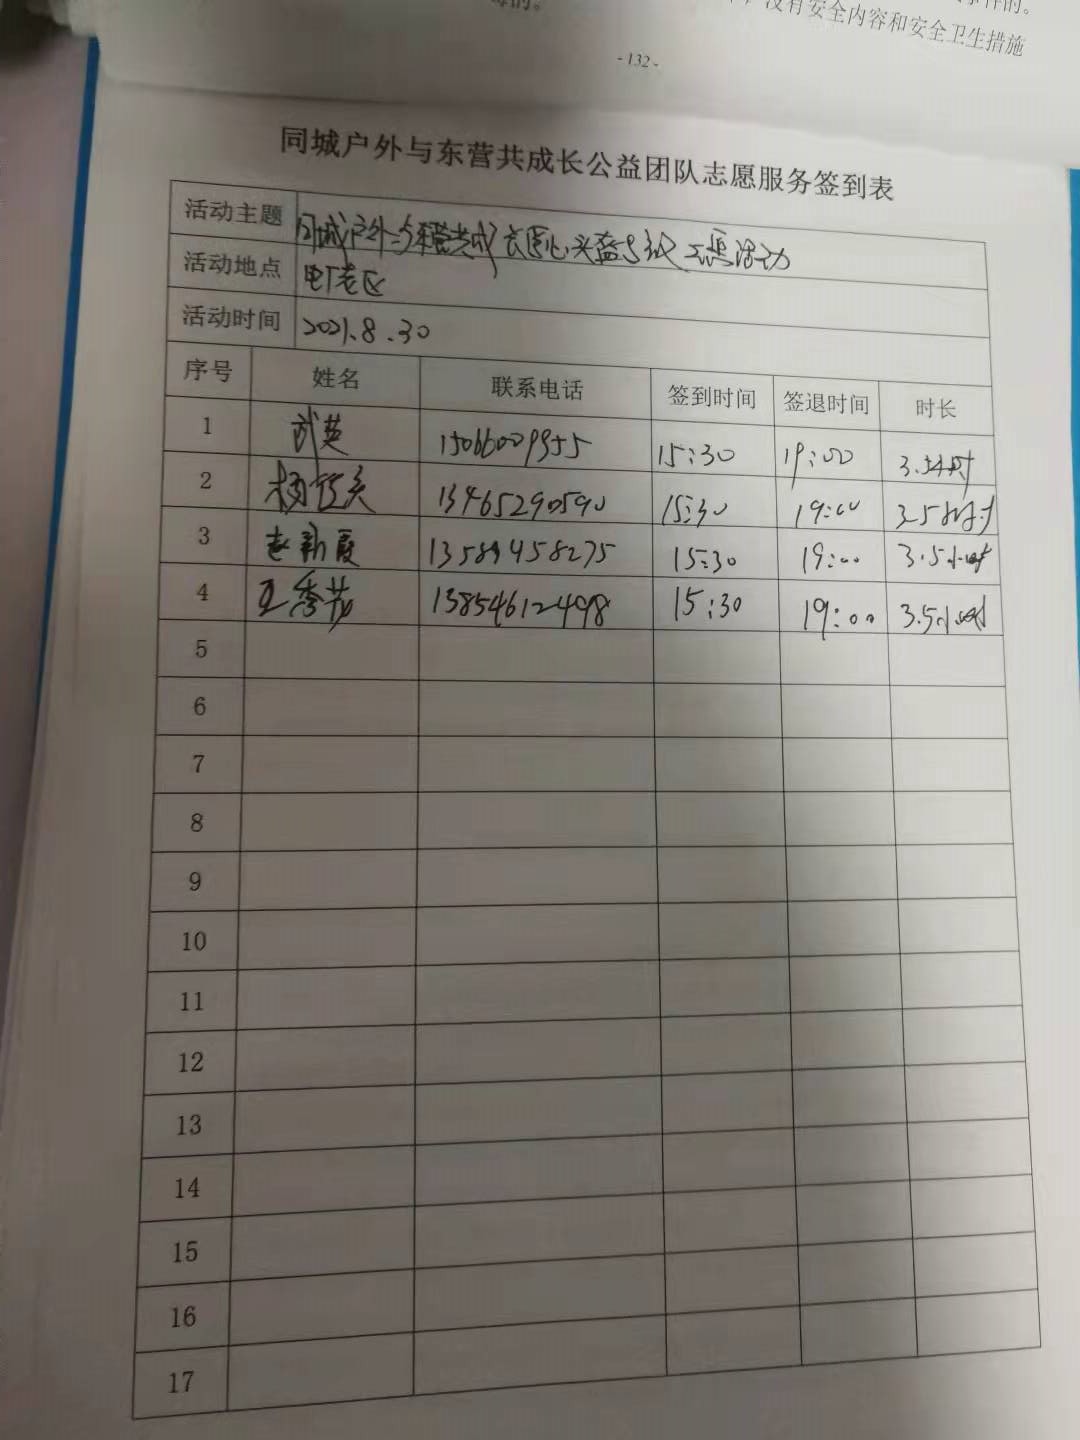 没有安全内容和安全卫生措施
- 132 -
同城户外与东营共成长公益团队志愿服务签到表
活动主题 同城户外与东营共成长 活动
活动地点 电厂老区
活动时间 2021.8.30
序号 姓名 联系电话 签到时间 签退时间 时长
1 武英 15066009955 15:30 19:00 3.5小时
2 杨 13465290590 15:30 19:00 3.5小时
3 赵新霞 13589458275 15:30 19:00 3.5小时
4 王秀芬 13854612498 15:30 19:00 3.5小时
5
6
7
8
9
10
11
12
13
14
15
16
17